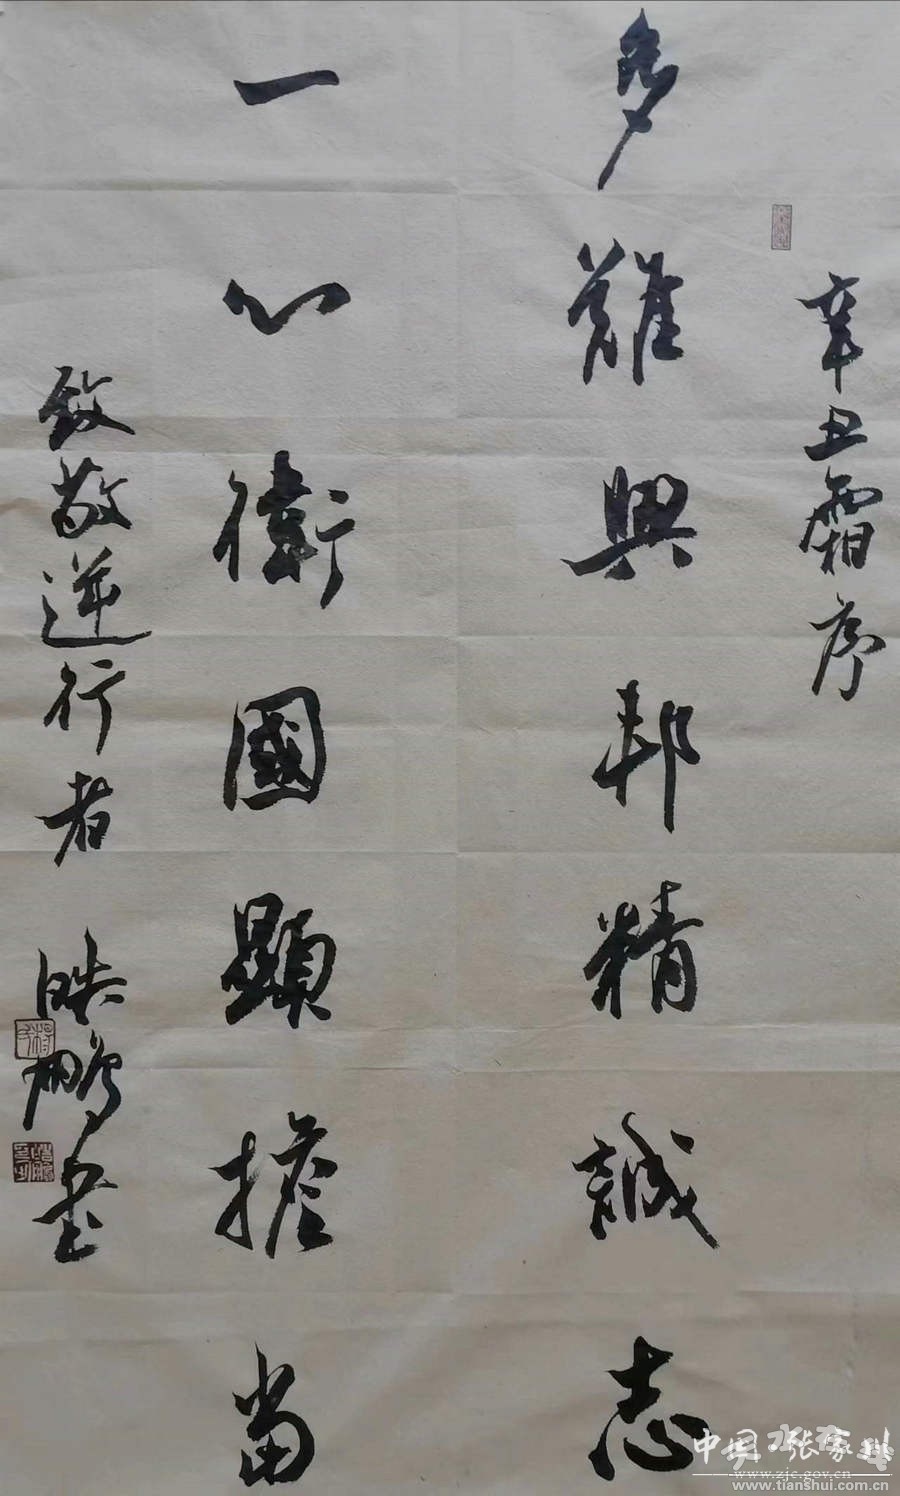 辛丑霜序
多難興邦精誠志
一心衛國顯擔當
致敬逆行者 映鵬書
www.zjc.gov.cn
www.tianshui.com.cn